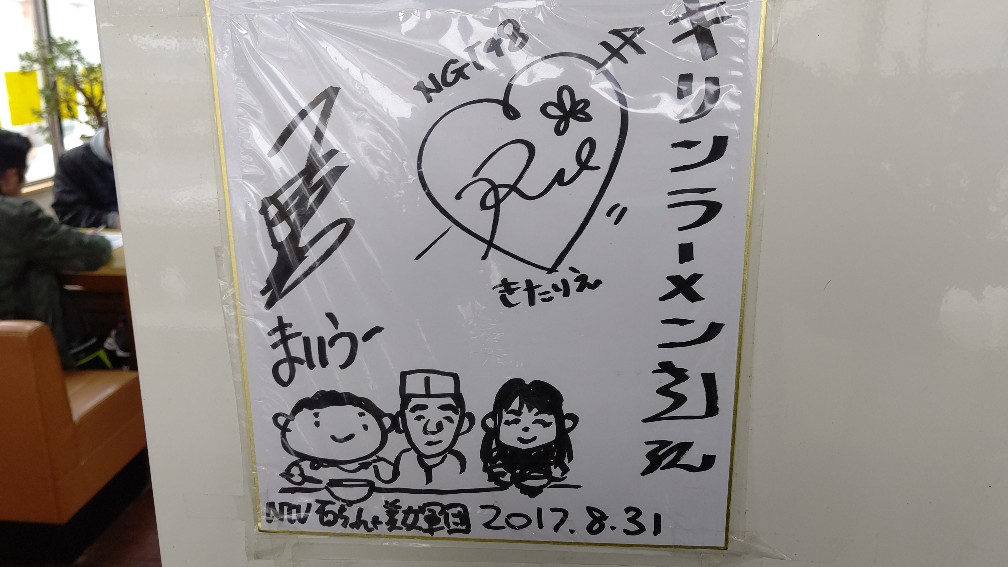 キリンラーメン
NGT48
Rie
きたりえ
まいうー
NTV 石ちゃん+美女軍団 2017.8.31